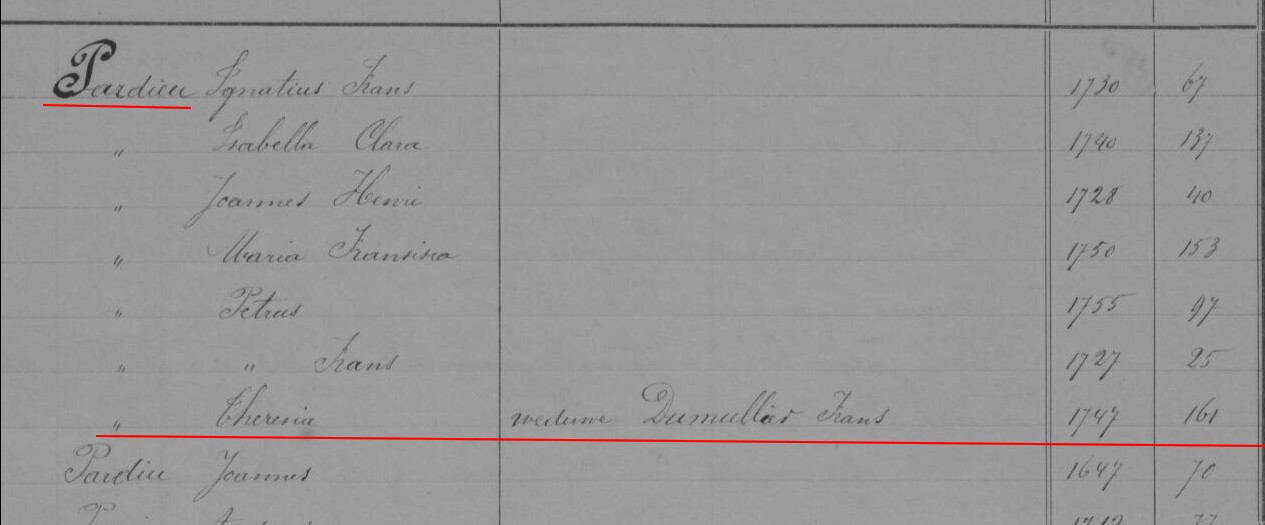 Pardieu Ignatius Frans 1730 67
" Isabella Clara 1740 137
" Joannes Henri 1728 40
" Maria Fransisca 1750 153
" Petrus 1755 97
" " Frans 1727 25
" Theresia weduwe Dumullier Frans 1747 161
Pardieu Joannes 1647 70